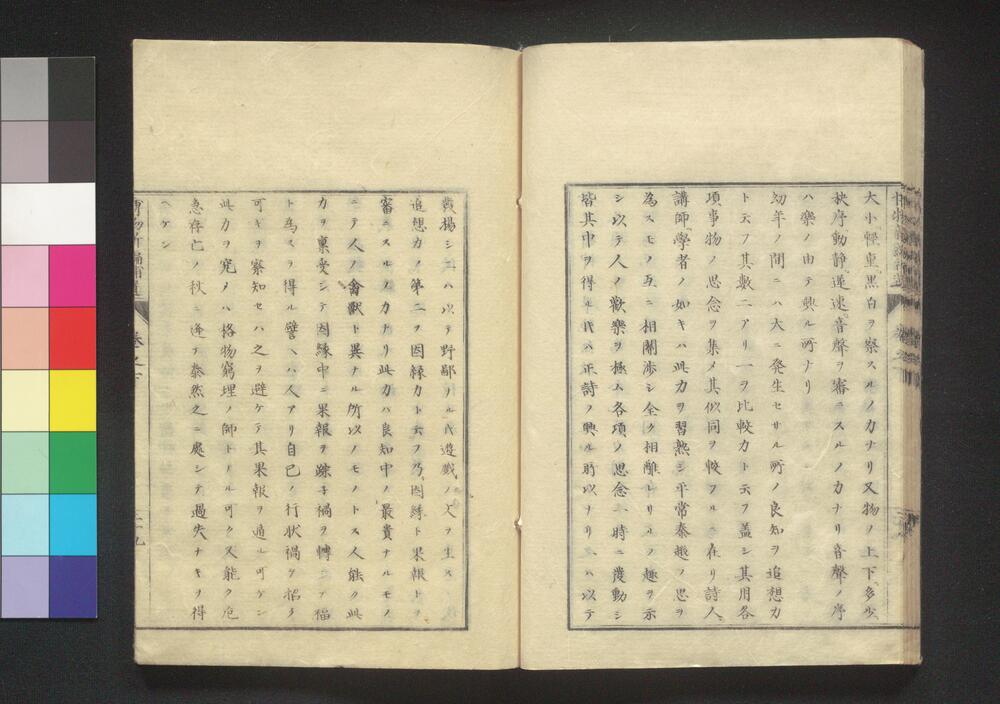 大小軽重黒白ヲ察スルノ力ナリ又物ノ上下多少
秩序動静遅速音聲ヲ審ニスルノ力ナリ音聲ノ序
ハ樂ノ由テ興ル所ナリ
幼年ノ間ニハ大ニ発生セサル所ノ良知ヲ追想力
ト云フ其數二アリ一ヲ比較力ト云フ蓋シ其用各
項事物ノ思念ヲ集メ其似同ヲ較フルニ在リ詩人
講師學者ノ如キハ此力ヲ習熟シ平常秦越ノ思ヲ
為スモノ互ニ相關渉シ全ク相離レサルノ趣ヲ示
シ以テ人ノ歡樂ヲ極ム各項ノ思念一時ニ發動シ
皆其中ヲ得ル氏ハ正詩ノ興ル所以ナリ一ハ以テ
發揚シ二ハ以テ野鄙ヲル氏遊戯ノ文ヲ生ス
追想力ノ第二ヲ因練力ト云フ乃因緣ト果報トヲ
審ニスルノ力ナリ此力ハ良知中ノ最貴ナルモノ
ニテ人ノ禽獸ト異ナル所以ノモノトス人能ク此
力ヲ稟受シテ因緣中ニ果報ヲ踪子禍ヲ轉シテ福
ト為スヲ得ル譬ヘハ人アリ自己ノ行状禍ヲ招ク
可キヲ察知セハ之ヲ避ケテ其果報ヲ遁ル可ケン
此力ヲ究ノハ格物窮理ノ師トナル可ク又能ク危
急存亡ノ秋ニ逢テ泰然之ニ處シテ過失ナキヲ得
ヘケン
博物新編補遺 卷之下 二十九